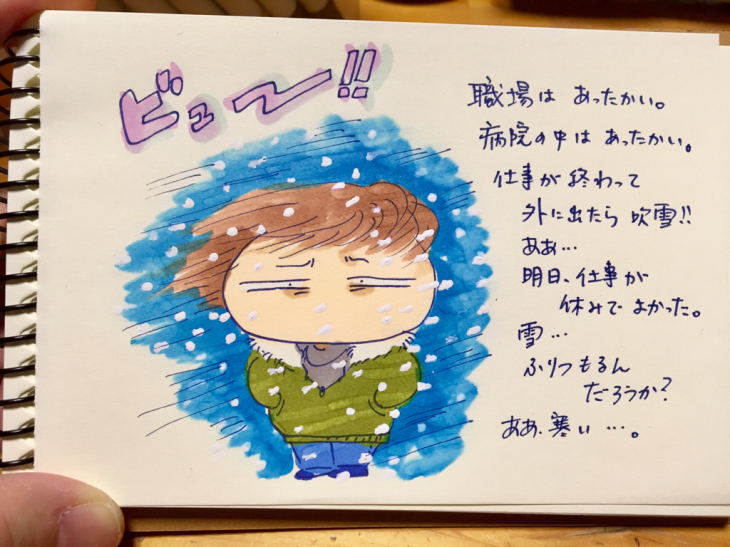 ビューー!!
職場は あったかい。
病院の中は あったかい。
仕事が 終わって
外に出たら 吹雪!!
ああ…
明日、仕事が
休みで よかった。
雪…
ふりつもるん
だろうか?
ああ、寒い …。